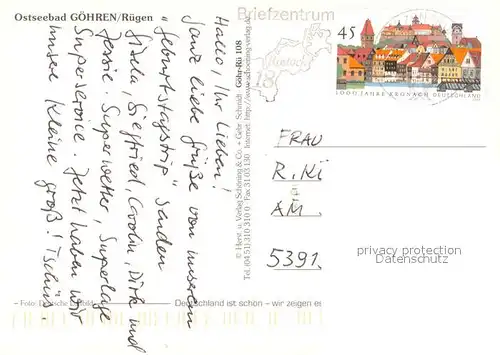 Ostseebad GÖHREN/Rügen
Hallo, Ihr Lieben!
Ganz liebe Grüße von unserem
"Geburtstagstrip" senden
Siegfried, Carola, Dirk und
Jessie. Superwetter, Superlage,
Superservice. Jetzt haben wir
unsere Kleine groß! Tschüss.
© Herst. u. Verlag Schöning & Co. + Gebr. Schmidt
Tel. (04 51) 310 310 0 Fax 31 03 190
Göhr-Rü 108
Internet http://www.schoening-verlag.de
Briefzentrum
18
45
1000 JAHRE KRONACH DEUTSCHLAND
FRAU
R. Ki
AM
5391.
privacy protection
Datenschutz
Deutschland ist schön – wir zeigen es